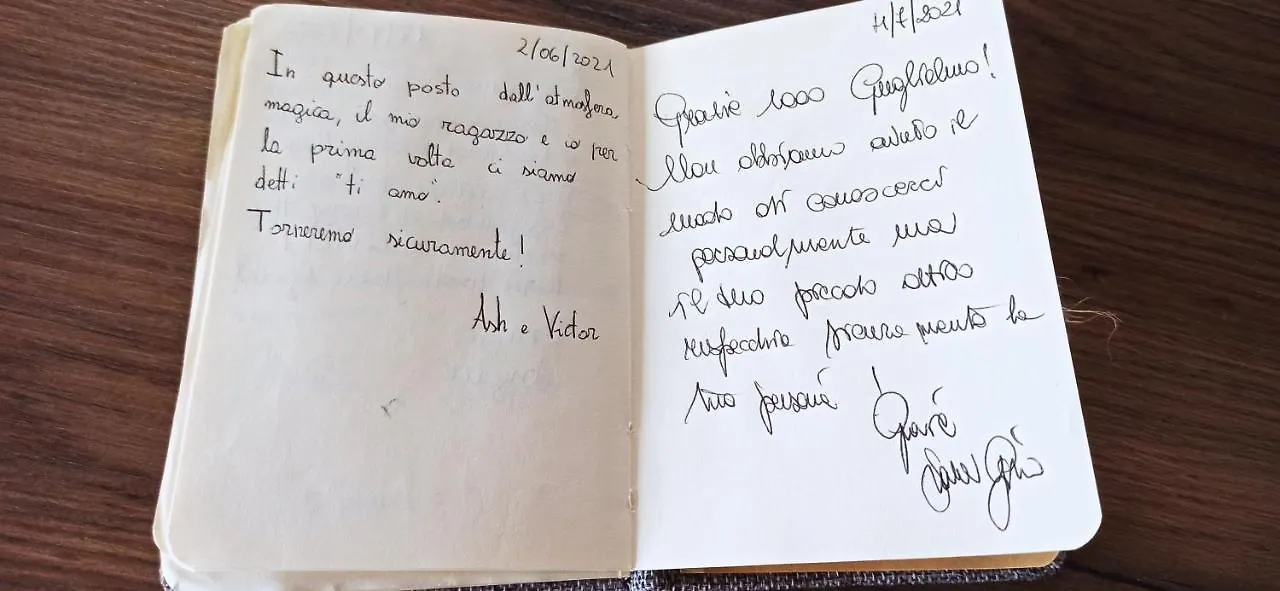 2/06/2021
In questo posto dall'atmosfera
magica, il mio ragazzo e io per
la prima volta ci siamo
detti "ti amo".
Torneremo sicuramente!
Ash e Victor
/2021
Grazie 1000 Guglielmo!
Non abbiamo avuto il
modo di conoscerci
personalmente ma
il tuo piccolo attico
rispecchia sicuramente la
tua persona!
Grazie